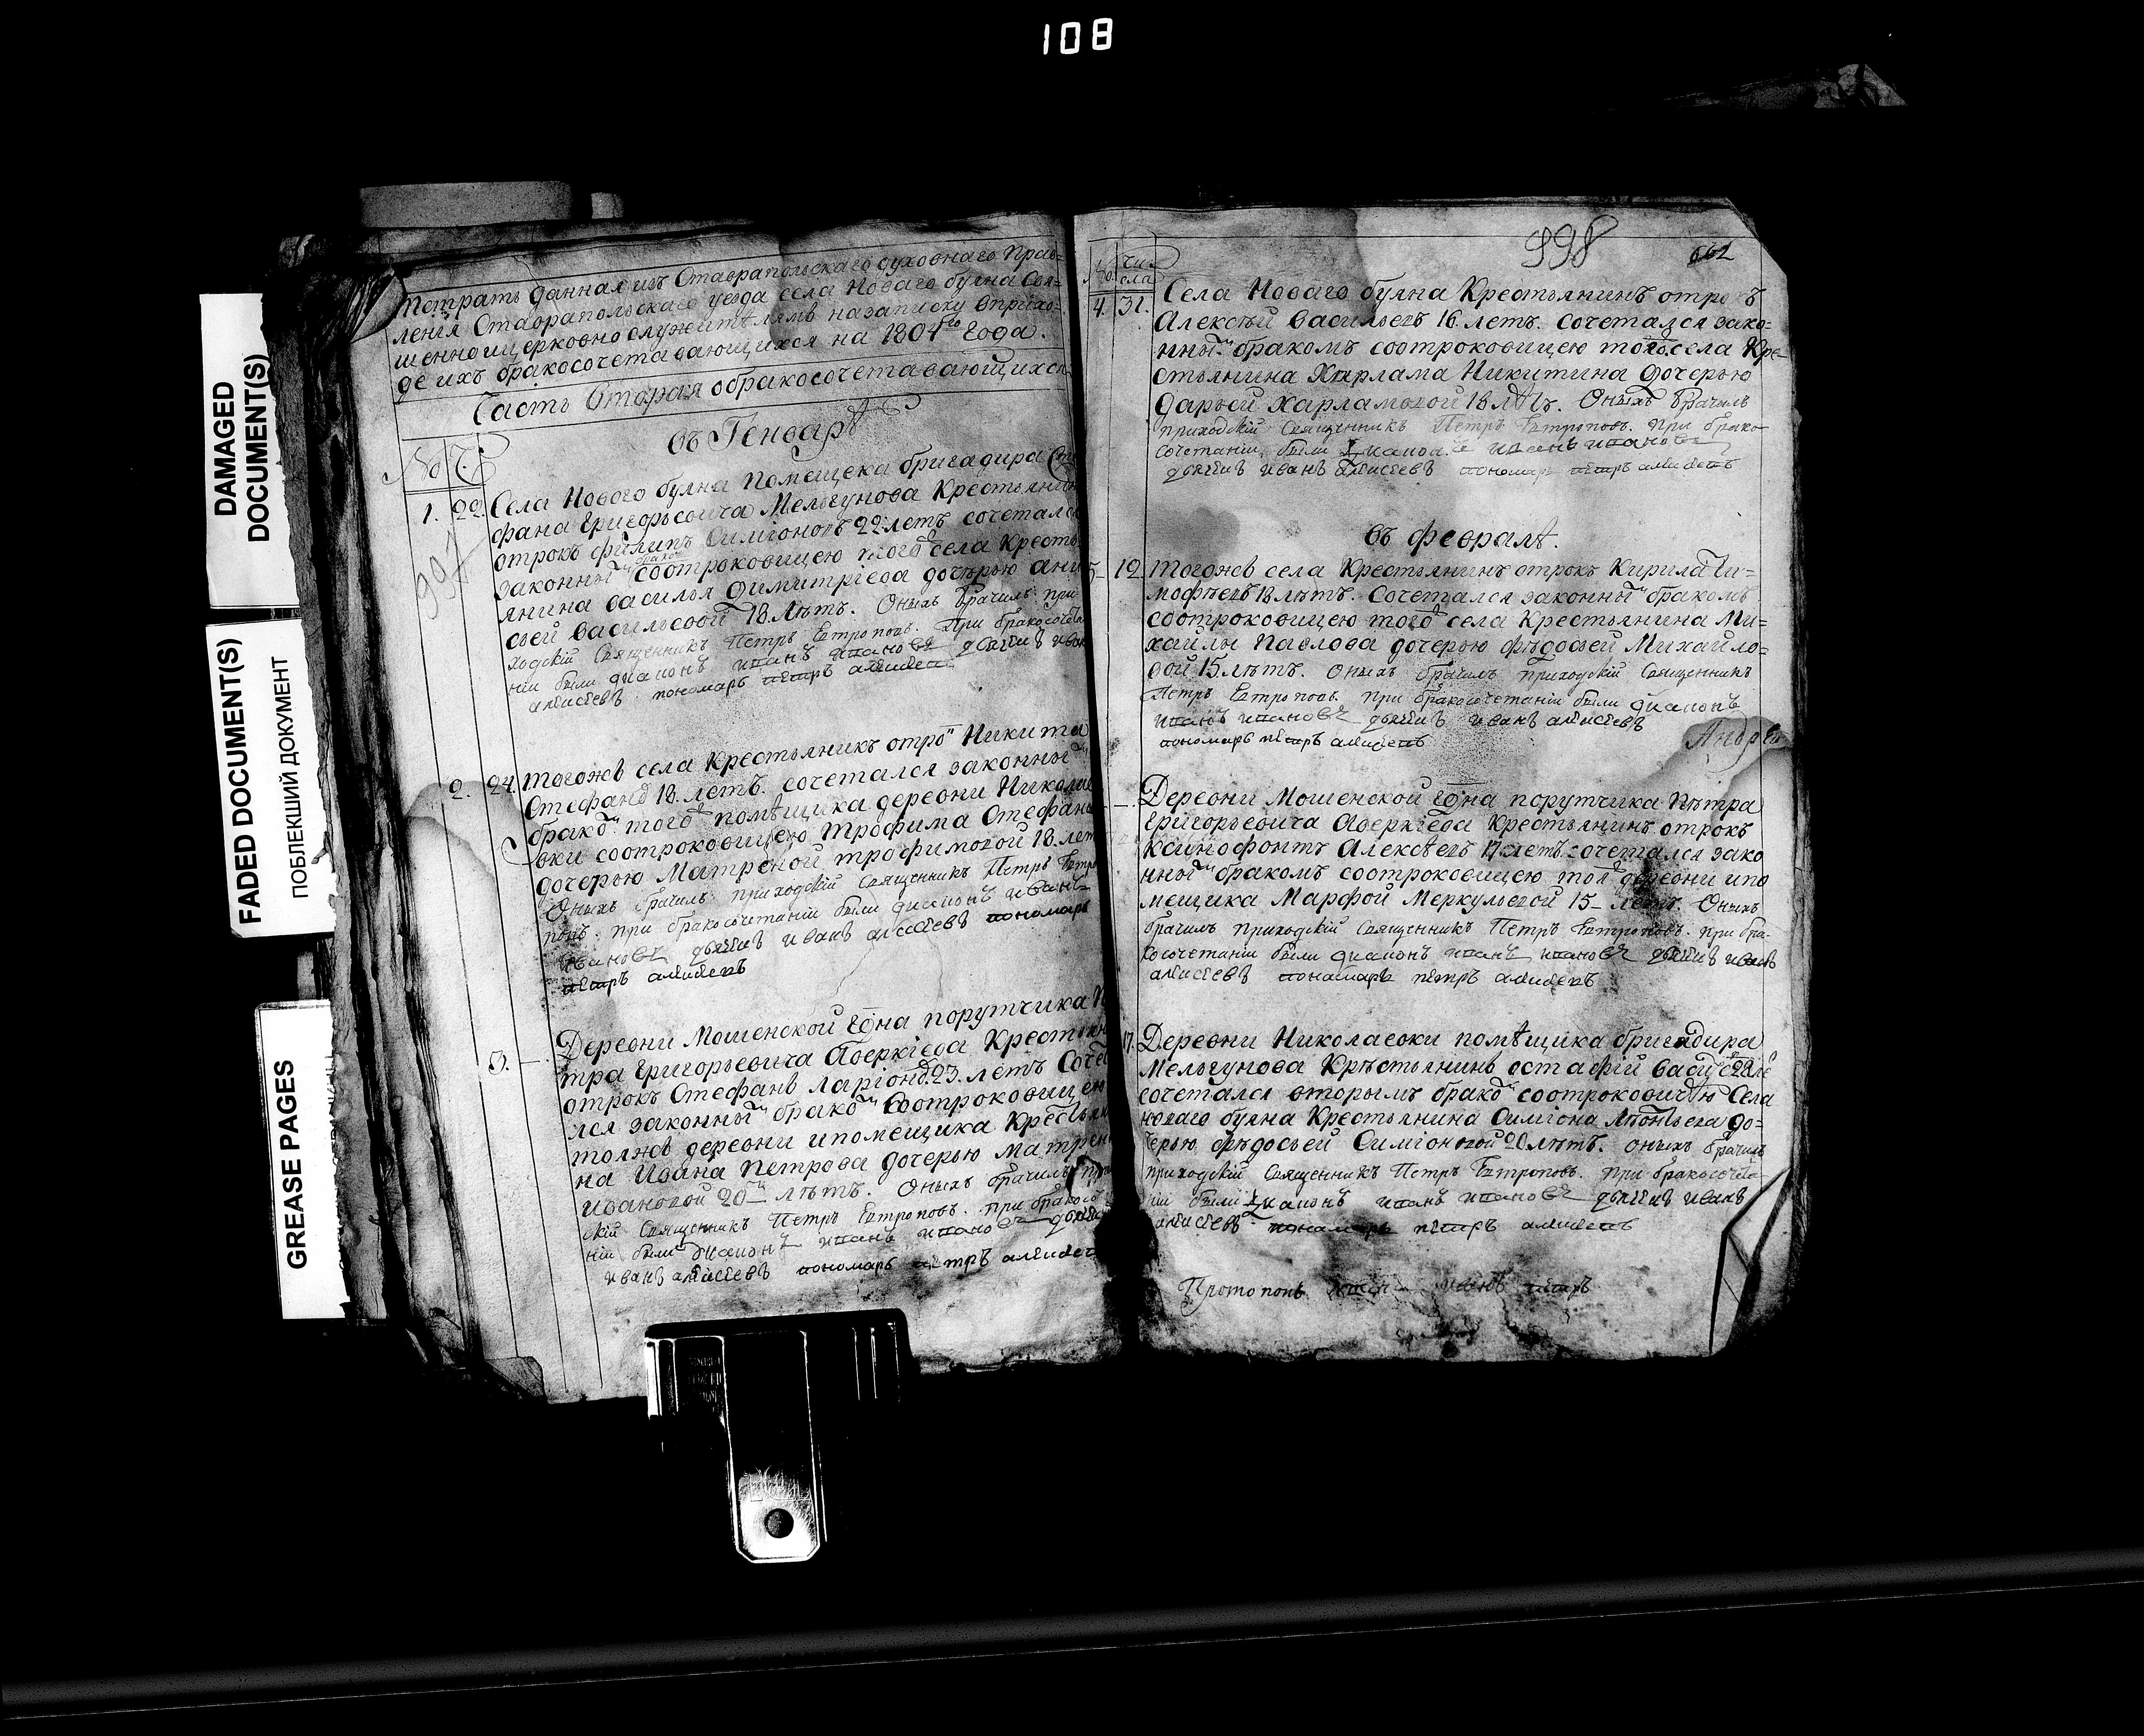 108
DAMAGED
DOCUMENT(S)
FADED DOCUMENT(S)
ПОБЛЕКШИЙ ДОКУМЕНТ
GREASE PAGES
Тетрать данная изъ Ставрапольскаго духовнаго Прав=
ленія Ставрапольскаго уезда села Новаго буяна Свя=
шенноицерковнослужителямъ назаписку вприхо=
де ихъ бракосочетавающихся на 1804го года.
Часть Вторая обракосочетавающихся
въ Генварѣ
No Ч.
1. 22. Села Нового буяна Помещека бригадира Сте
фана Григорьевича Мелъгунова Крестьянин
отрокъ филипъ Симіоновъ 22 летъ сочетался
законнымъ бракомъ соотроковицею того села Кресть
янина василья Димитріева дочерью ани
сьей васильевой 18. лѣтъ. Оныхъ брачилъ при
ходскій Священникъ Петръ Евтроповъ. При бракосочета
ніи были диаконъ иванъ ивановъ дьячекъ иван
алексеевъ пономарь петръ алексеевъ
2. 24. тогожъ села Крестьянинъ отро Никита
Стефано 18. летъ. сочетался законны
брако того помѣщика деревни Николае
вки соотроковицею трофима Стефано
дочерью Матреной трофимовой 18. лет
Оныхъ брачилъ приходскій Священникъ Петръ Евтро
повъ. при бракосочетаніи были диаконъ иванъ
ивановъ дьячекъ иванъ алексеевъ пономарь
петръ алексеевъ
3. — Деревни Мошенской Гдна порутчика Пе
тра Григорьевича Аверкіева Крестьянин
отрокъ Стефанъ ларіоно 23. летъ Сочета
лся законны брако Соотроковицею
тояжъ деревни ипомещика Крестьяни
на Ивана Петрова дочерью Матреной
ивановой 20 лѣтъ. Оныхъ брачилъ прихо
скій Священникъ Петръ Евтроповъ. при бракосоч
ніи были диаконъ иванъ ивановъ дьячекъ
иванъ алексеевъ пономарь петръ алексеевъ
998
662
No числа
4. 31. Села Новаго буяна Крестьянинъ отрокъ
Алексѣй васильевъ 16. летъ. сочетался зако=
нны бракомъ соотроковицею тогожъ села Кре=
стьянина Харлама Никитина дочерью
дарьей Харламовой 18 лѣтъ. Оныхъ брачилъ
приходскій Священникъ Петръ Евтроповъ. При брако
сочетаніи были диаконъ иванъ ивановъ
дьячекъ иванъ алексеевъ пономарь петръ алексеевъ
въ февралѣ.
5 12. тогожъ села Крестьянинъ отрокъ Кирила Ти=
мофѣевъ 18 лѣтъ. Сочетался законны бракомъ
соотроковицею того села Крестьянина Ми=
хайлы Павлова дочерью фѣдосьей Михайло=
вой 15. лѣтъ. Оныхъ брачилъ приходскій Священникъ
Петръ Евтроповъ. при бракосочетаніи были диаконъ
иванъ ивановъ дьячекъ иванъ алексеевъ
пономарь петръ алексеевъ
Андрей
— Деревни Мошенской Гдна порутчика Пѣтра
Григорьевича Аверкіева Крестьянинъ отрокъ
Ксинофонтъ Алексѣевъ 17 летъ сочетался зако
нны бракомъ соотроковицею той деревни ипо
мещика Марфой Меркульевой 15- летъ. Оныхъ
брачилъ приходскій Священникъ Петръ Евтроповъ. при бра-
косочетаніи были диаконъ иванъ ивановъ дьячекъ иванъ
алексеевъ понамарь петръ алексеевъ
17. Деревни Николаевки помѣщика бригадира
Мелъгунова Крѣстьянинъ естафій васи 28 ле
сочетался вторымъ брако соотроковицею Села
новаго буяна Крестьянина Симіона Леонтьева до=
черью фѣдосьей Симіоновой 20 лѣтъ. оныхъ брачилъ
приходскій Священникъ Петръ Евтроповъ. При бракосочета
ніи были диаконъ иванъ ивановъ дьячекъ иванъ
алексеевъ понамарь петръ алексеевъ
Протопопъ петръ